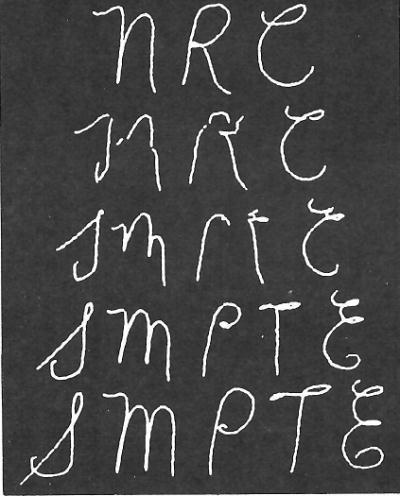 NRC
NRC
SMPTE
SMPTE